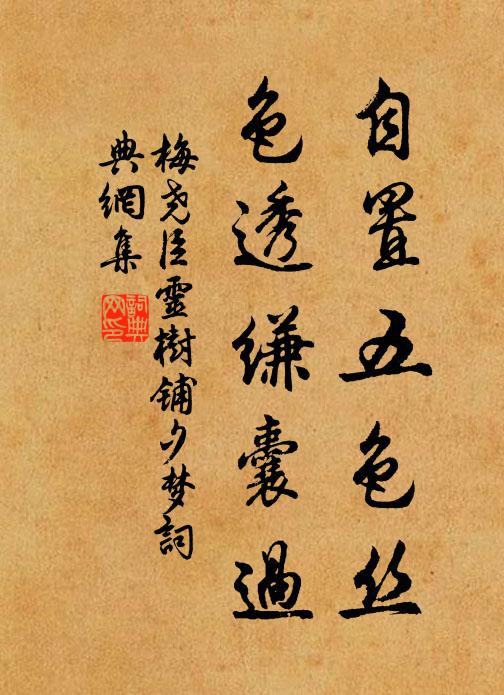 自置五色丝
色透缣囊過
梅尧臣靈樹鋪夕梦詞
典網集
詞典网印